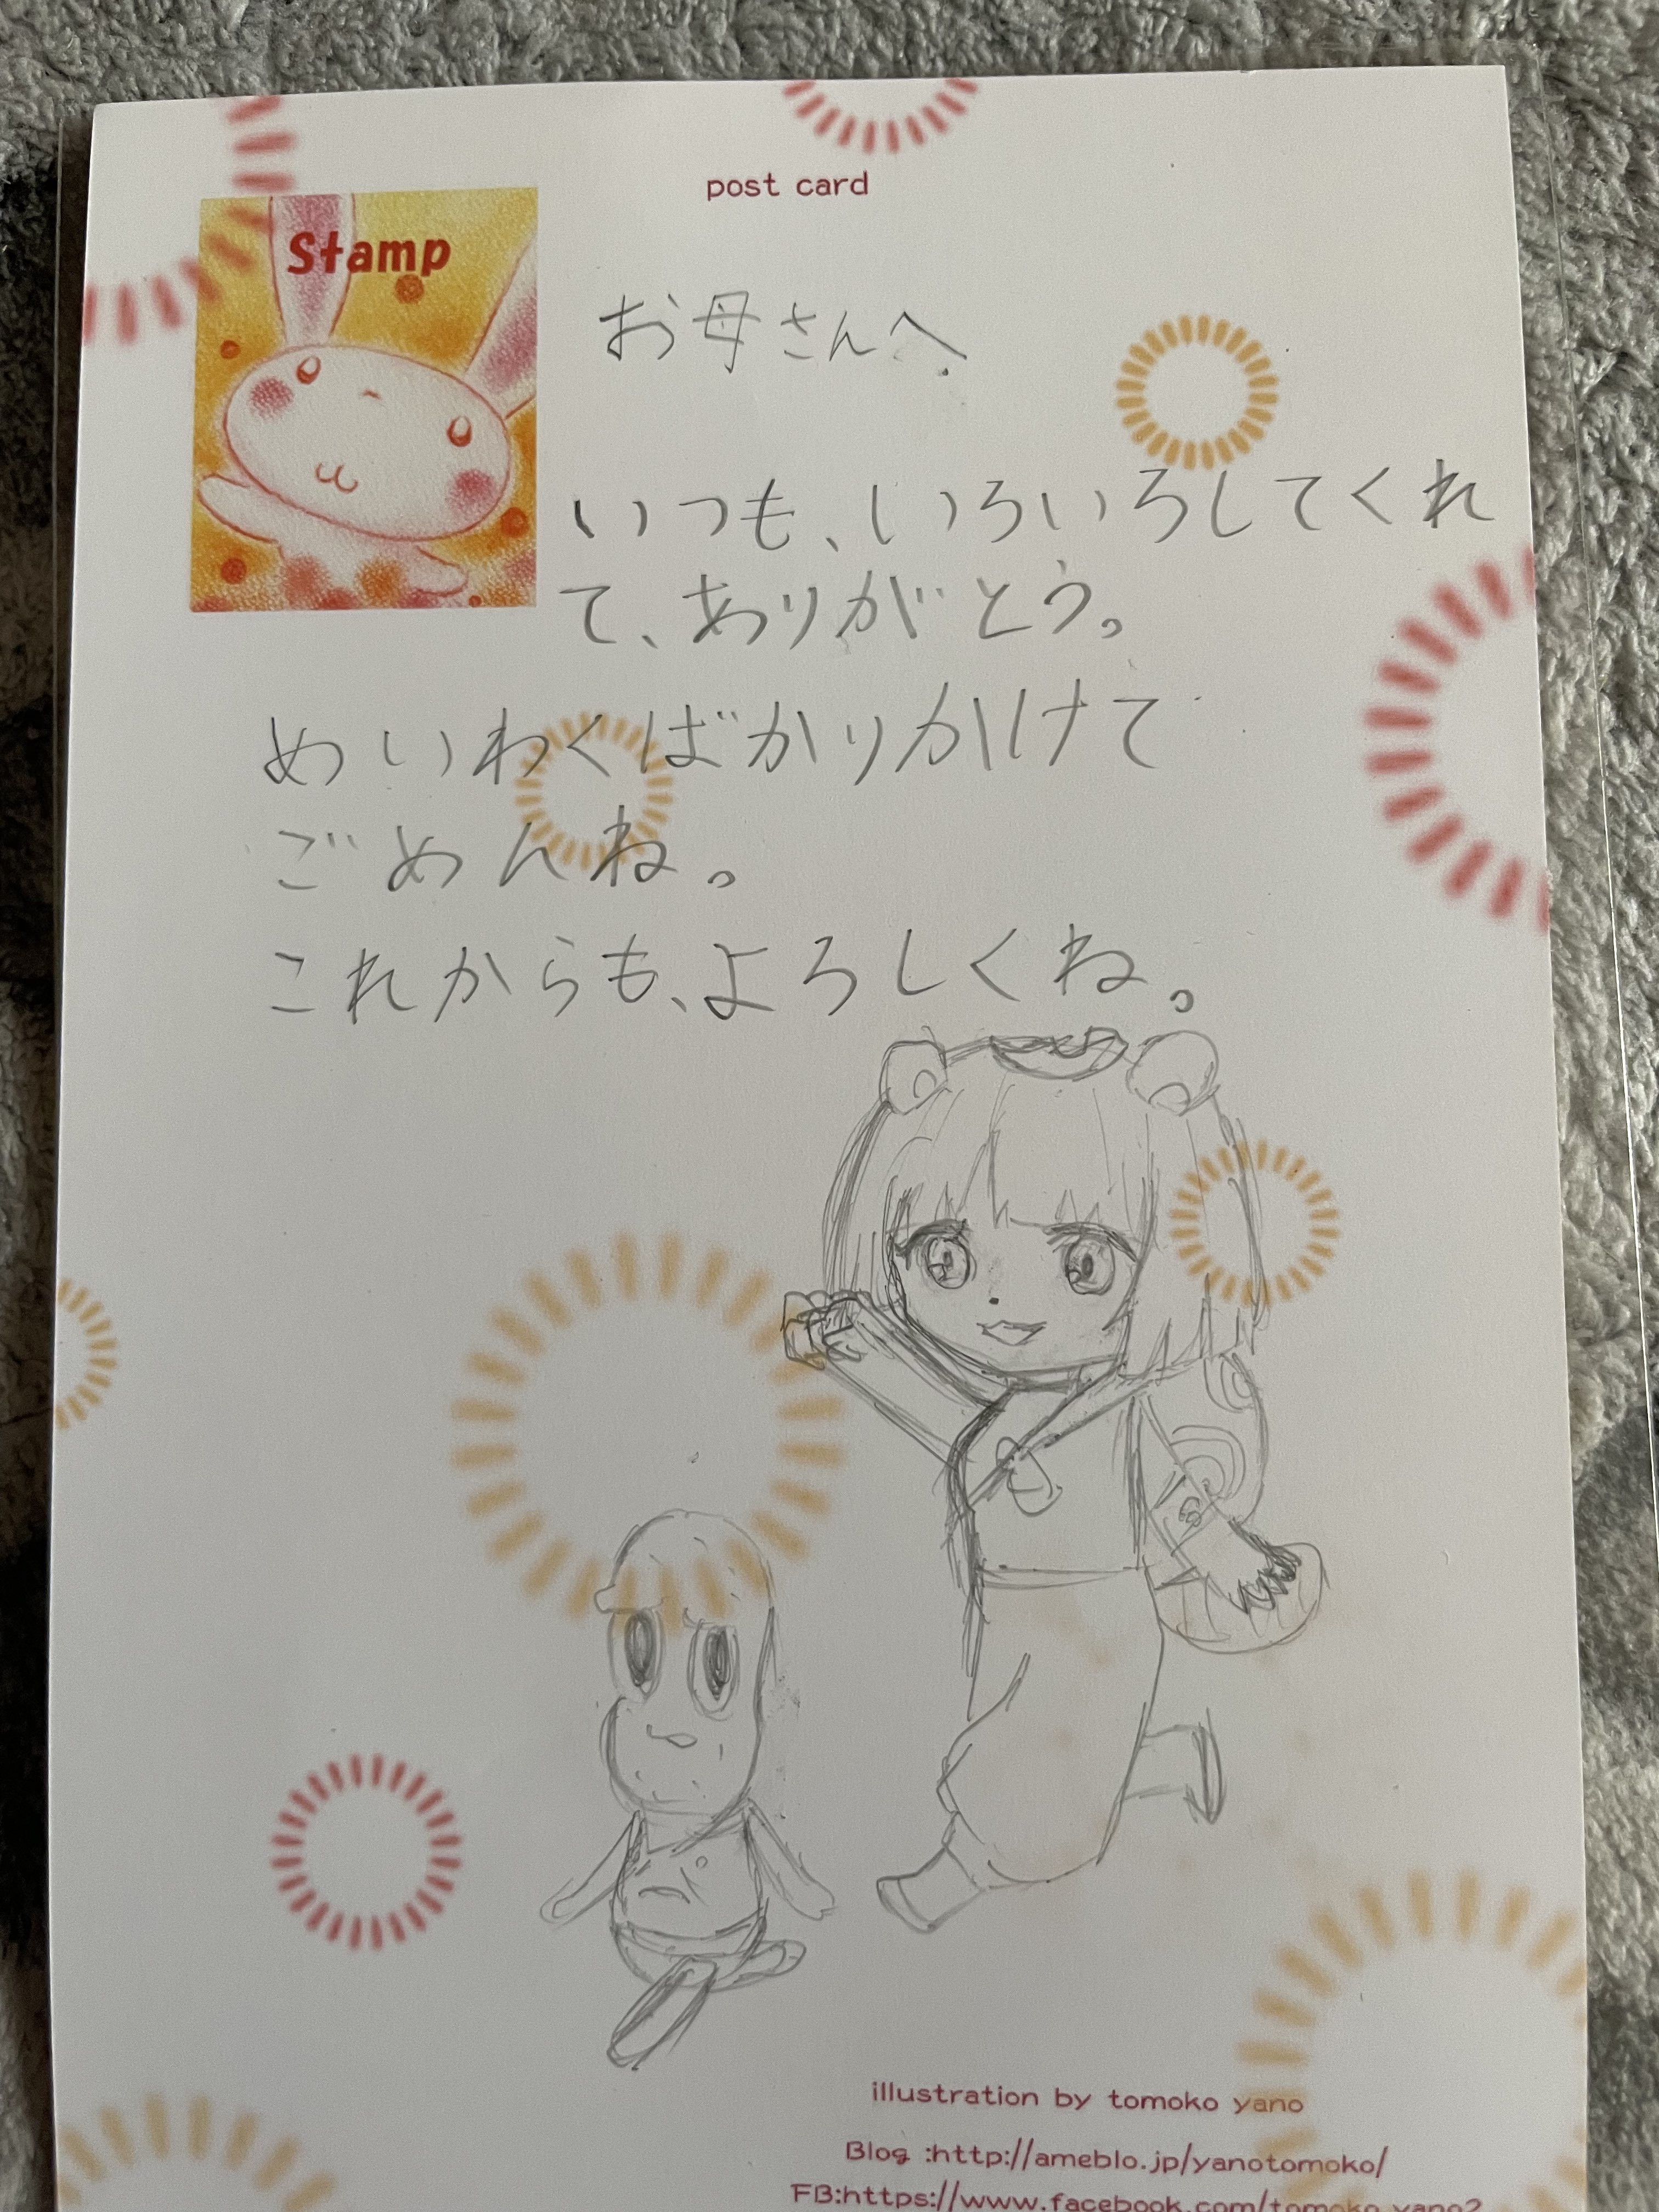 post card
Stamp
お母さんへ
いつも、いろいろしてくれ
て、ありがとう。
めいわくばかりかけて
ごめんね。
これからも、よろしくね。
illustration by tomoko yano
Blog :http://ameblo.jp/yanotomoko/
FB:https://www.facebook.com/tomoko.yano2